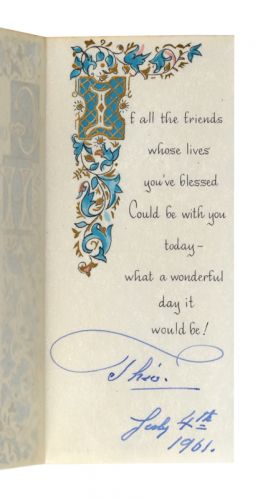 If all the friends
whose lives
you've blessed
Could be with you
today–
what a wonderful
day it
would be!
July 4th
1961.